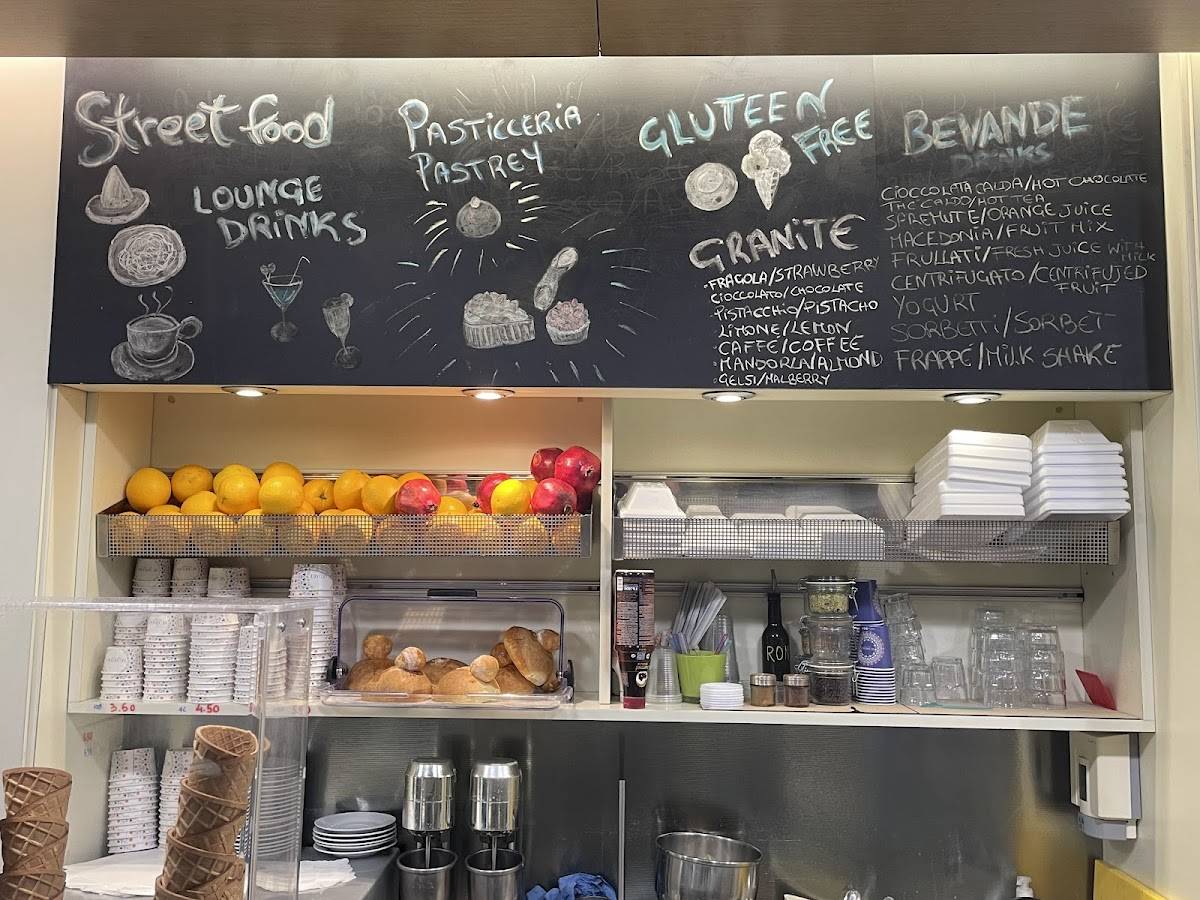 Street food
LOUNGE
DRINKS
PASTICCERIA
PASTREY
GLUTEEN
FREE
GRANITE
·FRAGOLA/STRAWBERRY
CIOCCOLATO/CHOCOLATE
·PISTACCHIO/PISTACHO
LIMONE/LEMON
·CAFFE/COFFEE
·MANDORLA/ALMOND
·GELSI/MALBERRY
BEVANDE
DRINKS
CIOCCOLATA CALDA/HOT CHOCOLATE
THE CALDO/HOT TEA
SPREMUTE/ORANGE JUICE
MACEDONIA/FRUIT MIX
FRULLATI/FRESH JUICE WITH
MILK
CENTRIFUGATO/CENTRIFUJED
FRUIT
YOGURT
SORBETTI/SORBET
FRAPPÉ/MILK SHAKE
3.60
4.50